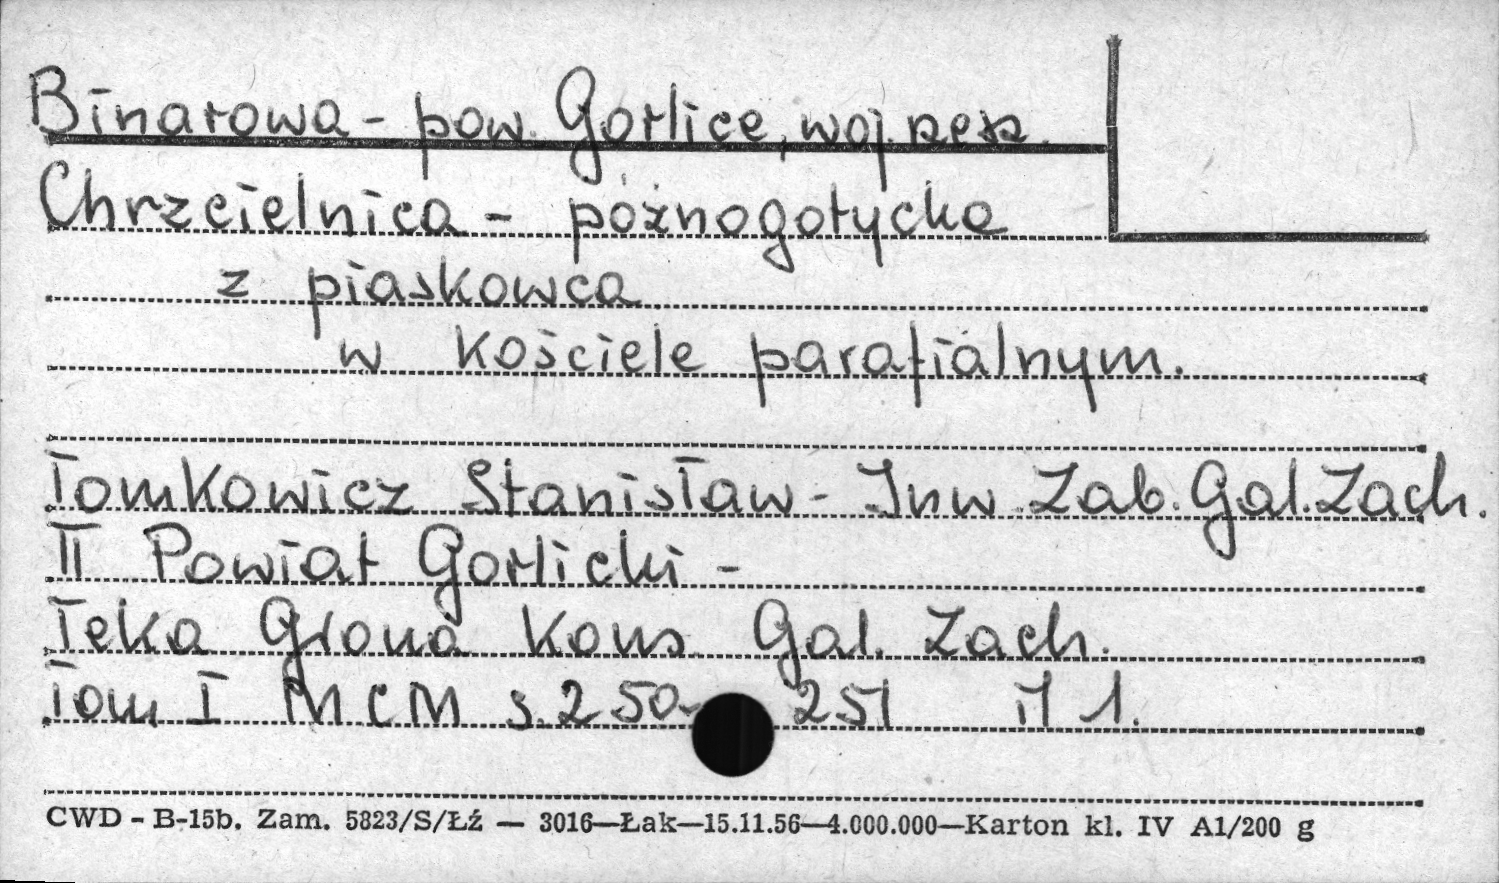 Binarowa - pow. Gorlice, woj. rzesz.
Chrzcielnica - późnogotycka
z piaskowca
w kościele parafialnym.
Tomkowicz Stanisław - Inw. Zab. Gal. Zach.
II Powiat Gorlicki -
Teka Grona Kons Gal. Zach.
Tom I MCM s. 250- 251 il 1.
CWD - B-15b. Zam. 5823/S/Łź — 3016—Łak—15.11.56—4.000.000—Karton kl. IV A1/200 g